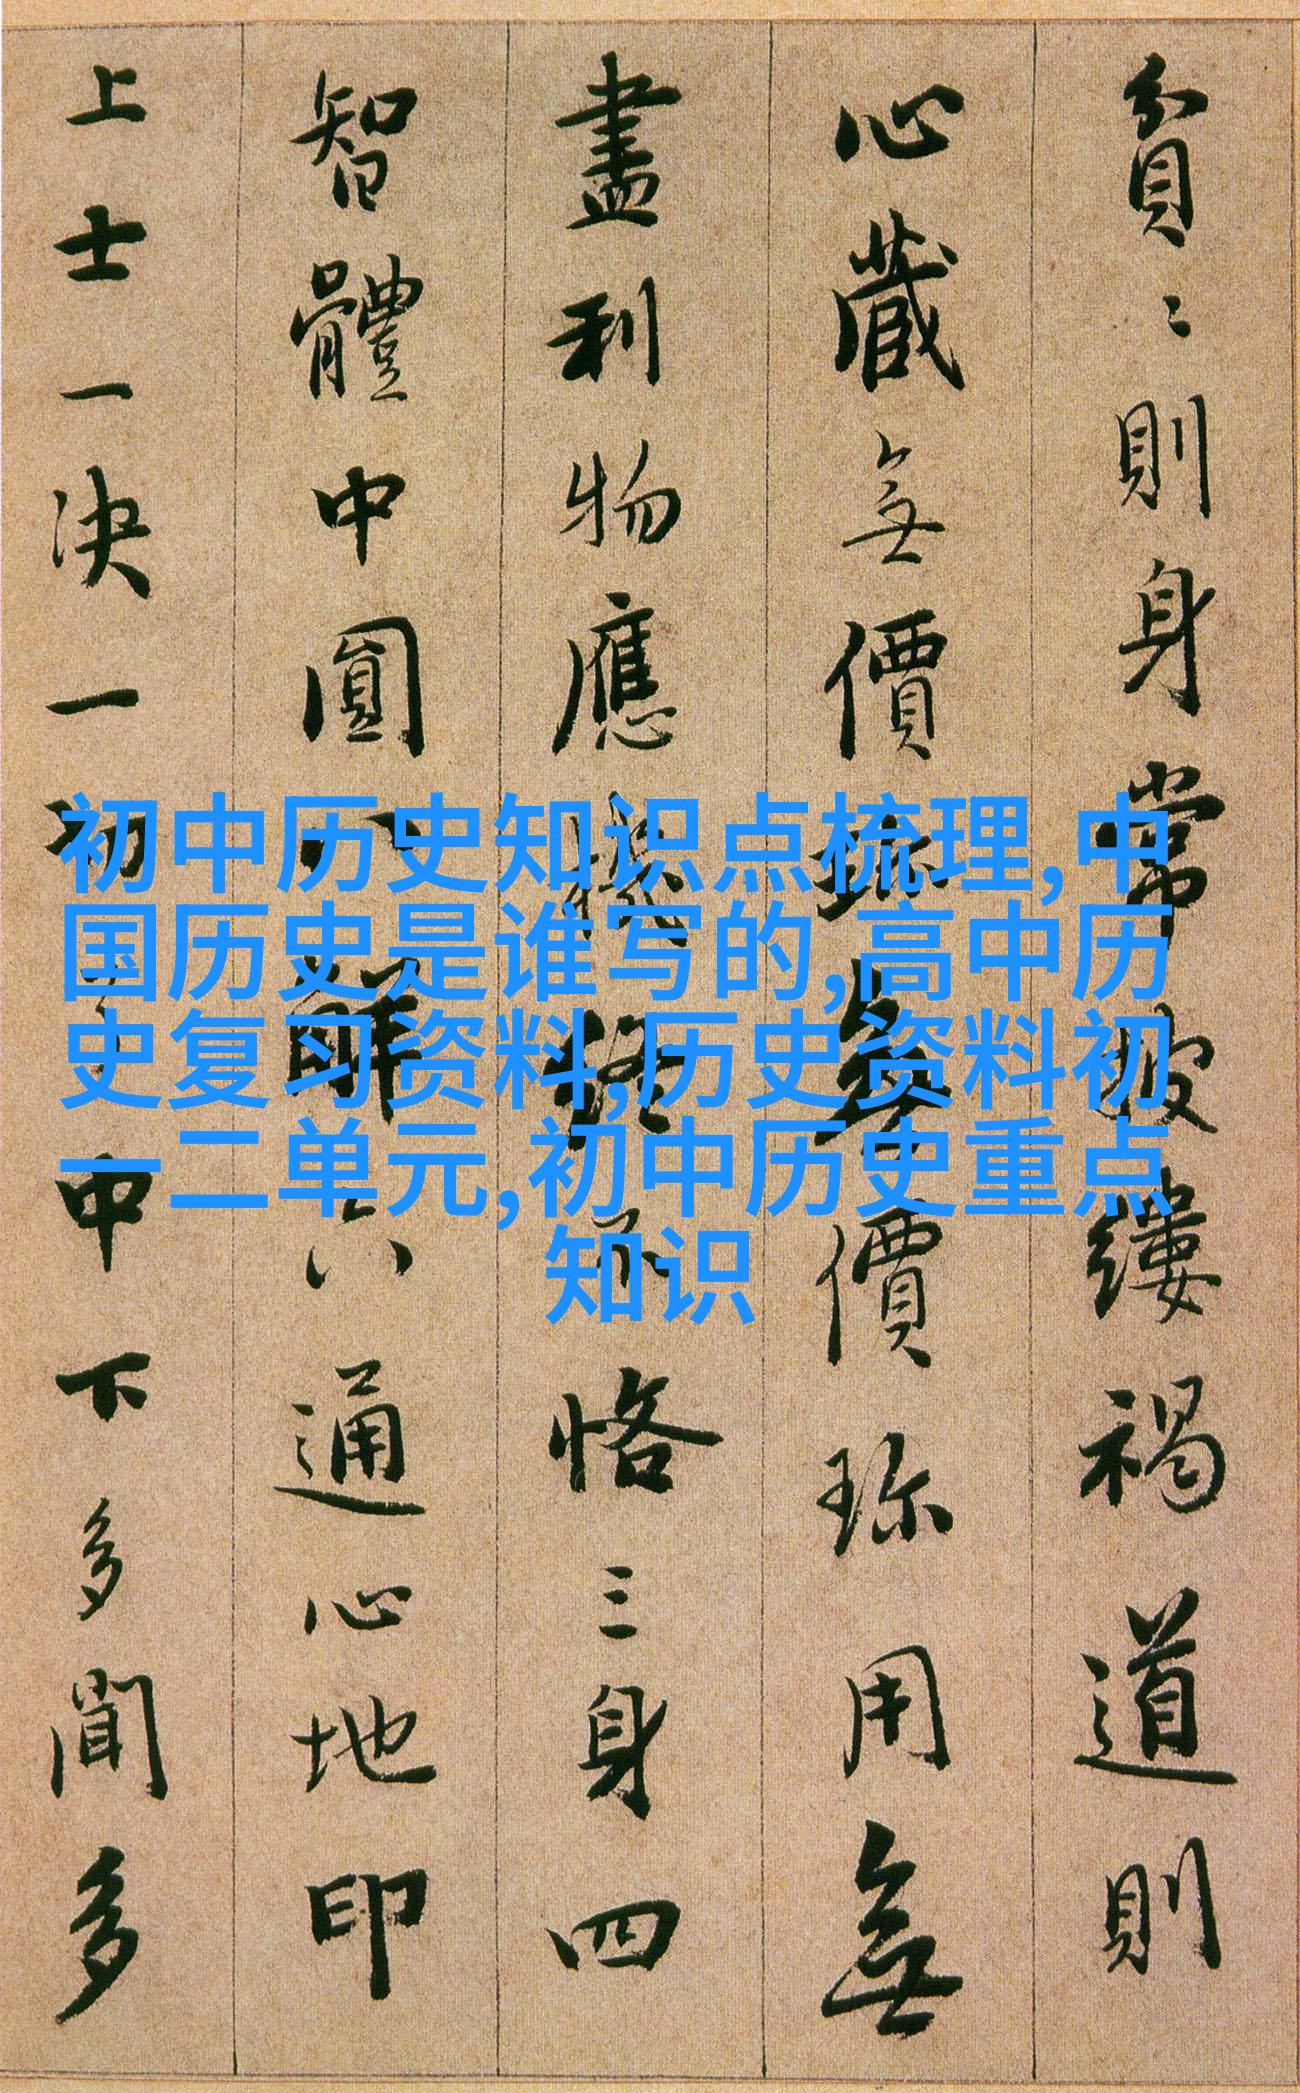 貧〻則身常披縷褐道則
心藏無價珎無價珎用無
盡利物應機終不恡三身四
智體中圓八解六通心地印
上士一决一切了中下多聞多
初中历史知识点梳理,中
国历史是谁写的,高中历
史复习资料,历史资料初
一二单元,初中历史重点
知识